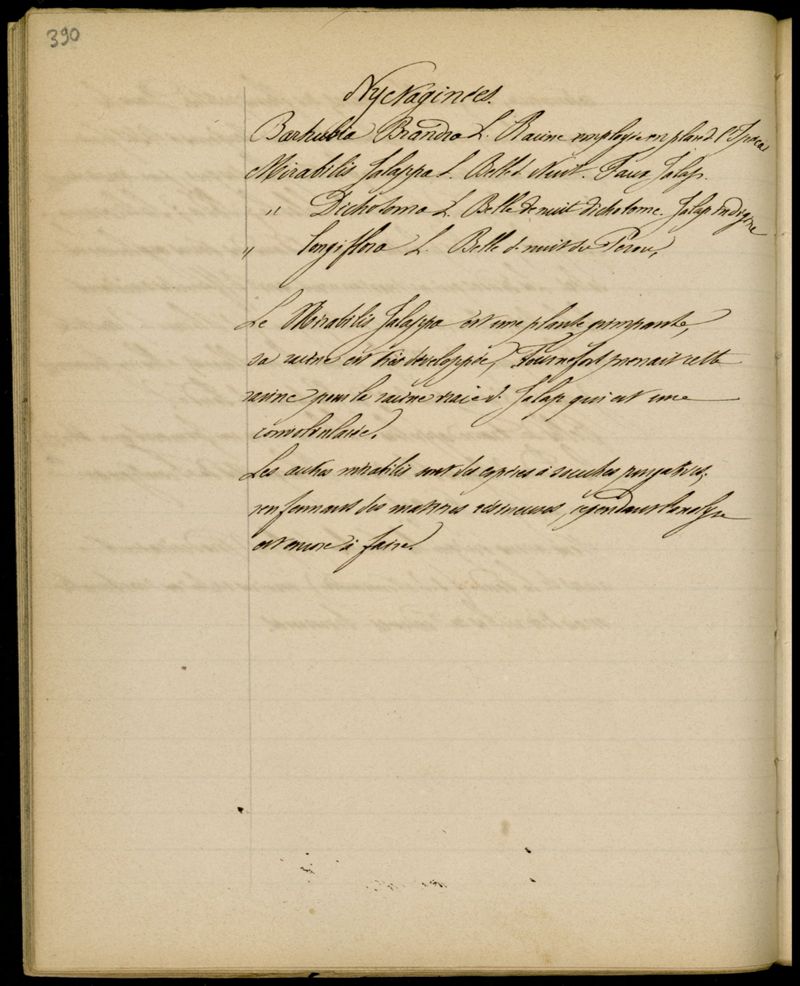 390
Nyctaginées.
Barhubia Biandra L. Racine employée en place d l'Ipeca
Mirabilis Jalappa L. Belle d Nuit. Faux Jalap.
" Dichotoma L. Belle de nuit dichotome. Jalap indigène
" longiflora L. Belle d nuit du Perou,
Le Mirabilis Jalappa est une plante grimpante,
sa racine est très développée, Tournefort prenait cette
racine pour la racine vraie d. Jalap qui est une
convolvulacée.
Les autres mirabilis sont des espèces à souches purgatives,
renfermant des matières résineuses, cependant l'analyse
est encore à faire.